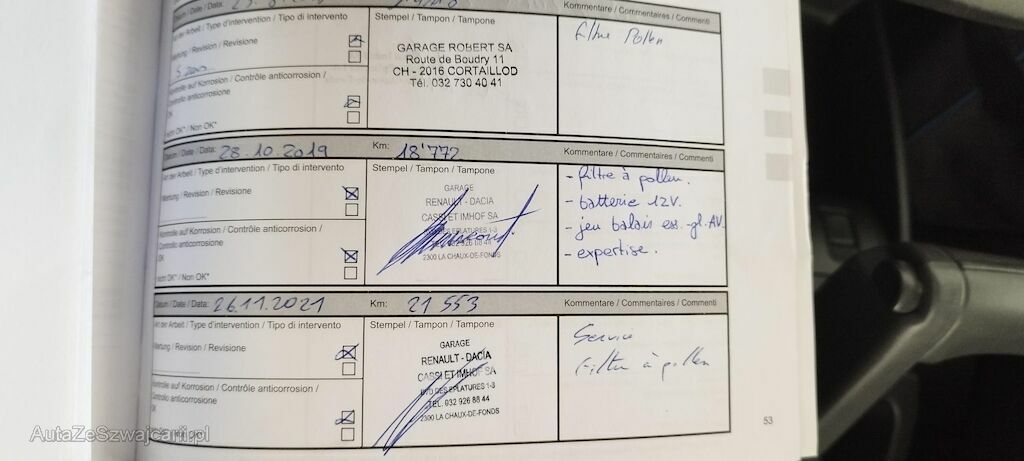 Kommentare / Commentaires / Commenti
Art der Arbeit / Type d'intervention / Tipo di intervento
Stempel / Tampon / Tampone
Filtre Pollen
Wartung / Revision / Revisione
GARAGE ROBERT SA
Route de Boudry 11
CH - 2016 CORTAILLOD
Tél. 032 730 40 41
Kontrolle auf Korrosion / Contrôle anticorrosion /
Controllo anticorrosione
OK
nicht OK* / Non OK*
Datum / Date / Data: 28.10.2019
Km: 18'772
Kommentare / Commentaires / Commenti
Art der Arbeit / Type d'intervention / Tipo di intervento
Stempel / Tampon / Tampone
- filtre à pollen.
- batterie 12V.
- jeu balais ess. gl. AV.
- expertise.
Wartung / Revision / Revisione
GARAGE
RENAULT - DACIA
CASSI ET IMHOF SA
2300 LA CHAUX-DE-FONDS
Kontrolle auf Korrosion / Contrôle anticorrosion /
Controllo anticorrosione
OK
nicht OK* / Non OK*
Datum / Date / Data: 26.11.2021
Km: 21 553
Kommentare / Commentaires / Commenti
Art der Arbeit / Type d'intervention / Tipo di intervento
Stempel / Tampon / Tampone
Service
Filtre à pollen
Wartung / Revision / Revisione
GARAGE
RENAULT - DACIA
CASSI ET IMHOF SA
BVD DES EPLATURES 1-3
TÉL. 032 926 88 44
2300 LA CHAUX-DE-FONDS
Kontrolle auf Korrosion / Contrôle anticorrosion /
Controllo anticorrosione
OK
53
AutaZeSzwajcarii.pl